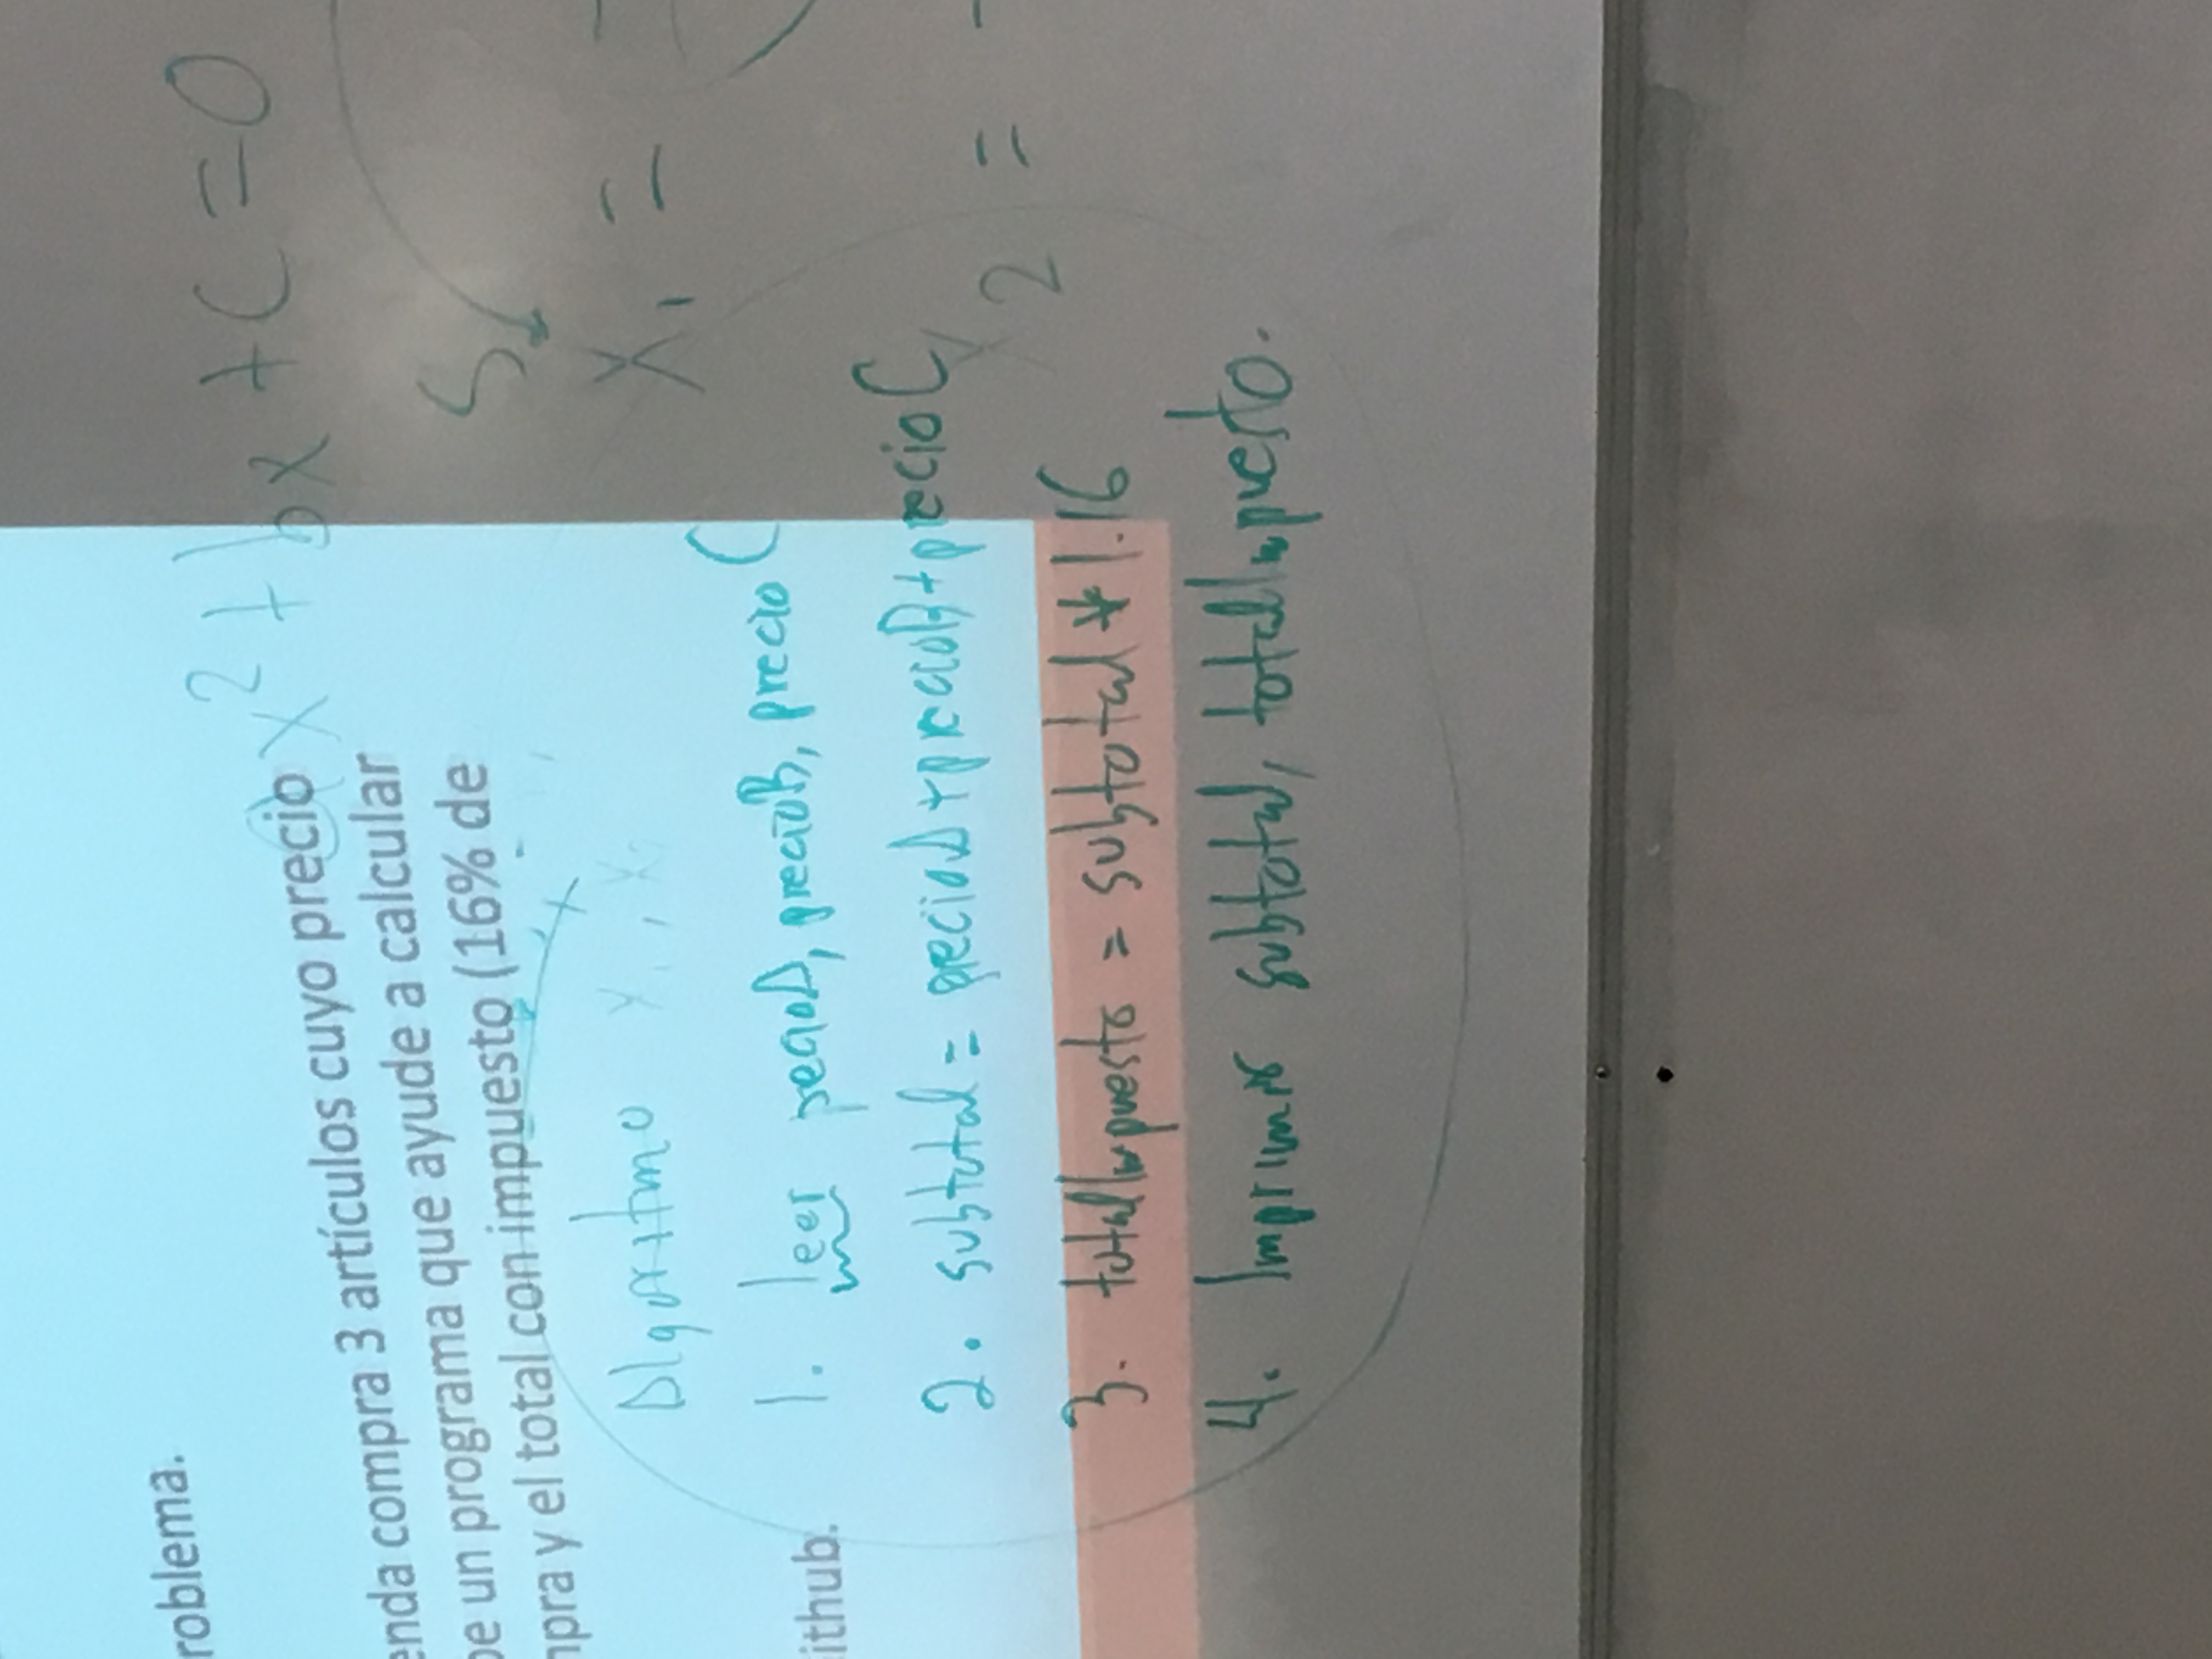 roblema.
ax² + bx + c = 0
enda compra 3 artículos cuyo precio
be un programa que ayude a calcular
mpra y el total con impuesto (16% de
S
Algoritmo x₁, x₂
x₁ =
1. leer precioA, precioB, precioC
ithub.
2. subtotal = precioA + precioB + precioC
x₂ =
3. totalImpuesto = subtotal * 1.16
4. Imprimir subtotal, totalImpuesto.